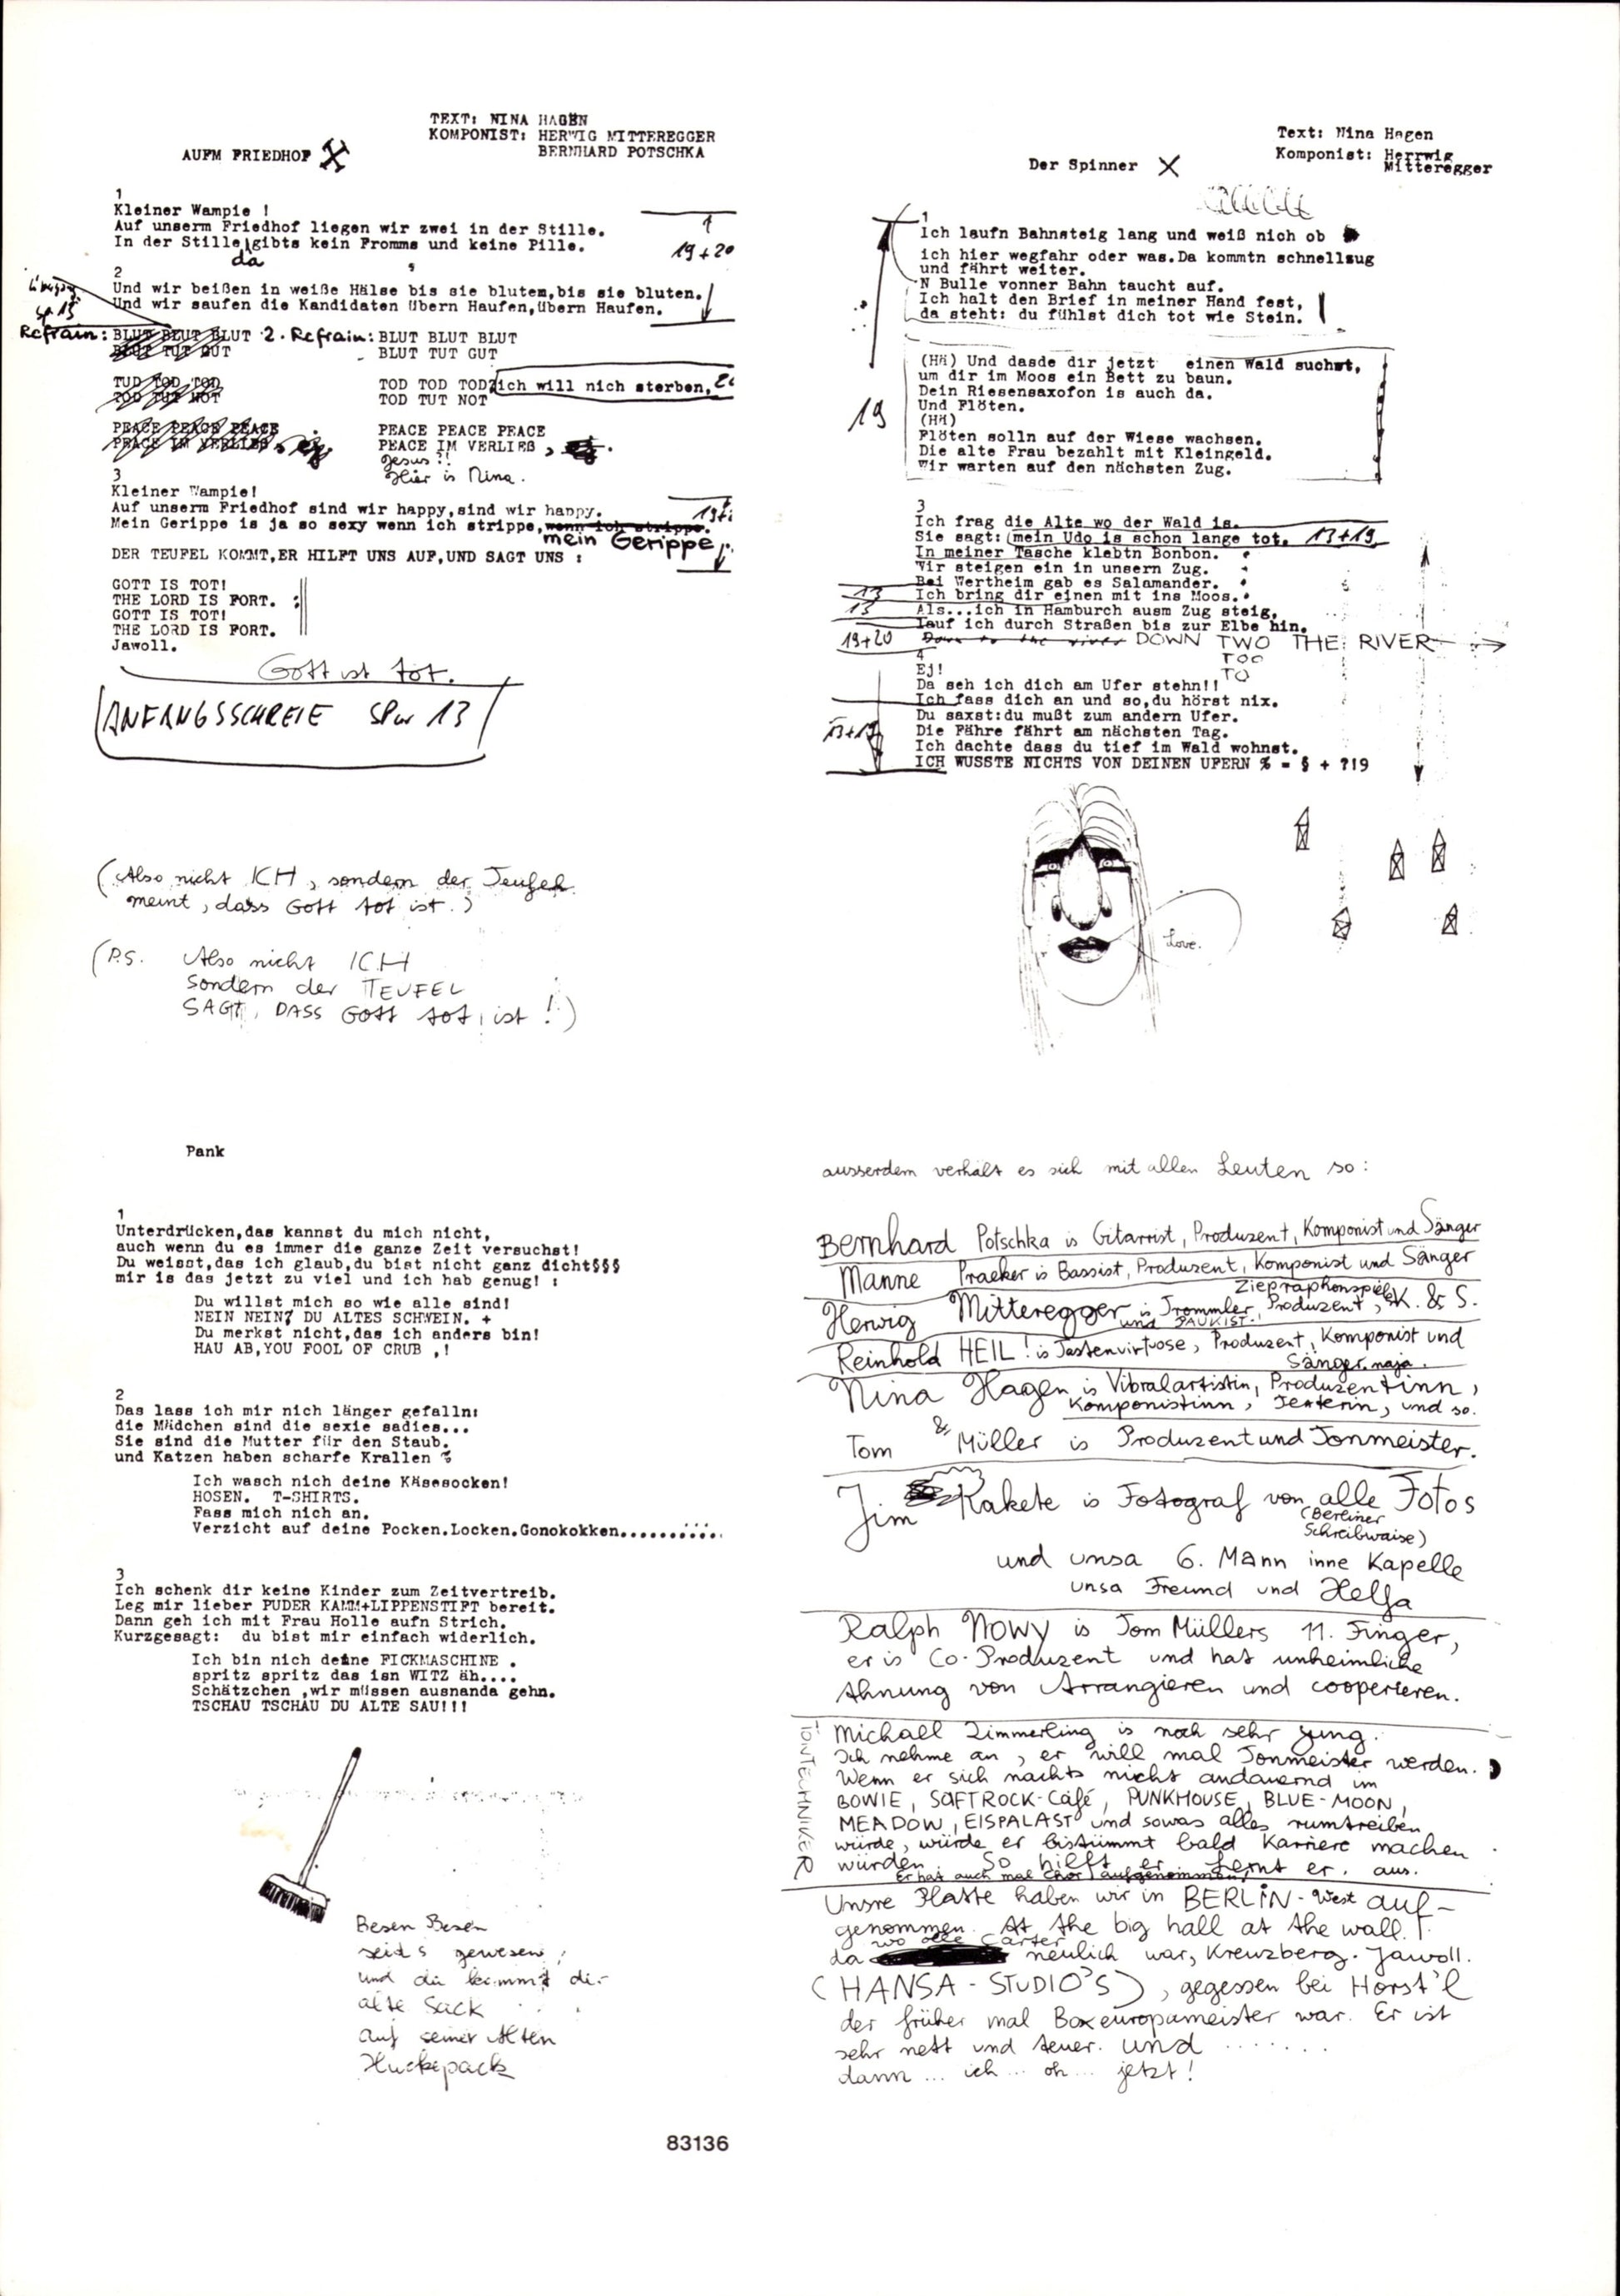 AUFM FRIEDHOF
TEXT: NINA HAGEN
KOMPONIST: HERWIG MITTEREGGER
BERNHARD POTSCHKA
1
Kleiner Wampie !
Auf unserm Friedhof liegen wir zwei in der Stille.
In der Stille,gibts kein Fromms und keine Pille.
da
19+20
2
Und wir beißen in weiße Hälse bis sie bluten,bis sie bluten.
Und wir saufen die Kandidaten übern Haufen,übern Haufen.
Refrain: BLUT BLUT BLUT 2. Refrain: BLUT BLUT BLUT
BLUT TUT GUT BLUT TUT GUT
TUD TOD TOD TOD TOD TOD ich will nich sterben,
TOD TUT NOT TOD TUT NOT
PEACE PEACE PEACE PEACE PEACE PEACE
PEACE IM VERLIEß PEACE IM VERLIEß,
Jesus?!
Hier is Nina.
3
Kleiner Wampie!
Auf unserm Friedhof sind wir happy,sind wir happy.
Mein Gerippe is ja so sexy wenn ich strippe,wenn ich strippe.
mein Gerippe
DER TEUFEL KOMMT,ER HILFT UNS AUF,UND SAGT UNS :
GOTT IS TOT!
THE LORD IS FORT.
GOTT IS TOT!
THE LORD IS FORT.
Jawoll.
Gott ist tot.
ANFANGSSCHREIE SPur 13
(Also nicht ICH, sondern der Teufel
meint, dass Gott tot ist.)
(P.S. Also nicht ICH
sondern der TEUFEL
SAGT, DASS GOTT tot ist!)
Der Spinner
Text: Nina Hagen
Komponist: Herrwig
Mitteregger
1
Ich laufn Bahnsteig lang und weiß nich ob
ich hier wegfahr oder was.Da kommtn schnellzug
und fährt weiter.
N Bulle vonner Bahn taucht auf.
Ich halt den Brief in meiner Hand fest,
da steht: du fühlst dich tot wie Stein.
(Hä) Und dasde dir jetzt einen Wald suchst,
um dir im Moos ein Bett zu baun.
Dein Riesensaxofon is auch da.
Und Flöten.
(Hä)
19
Flöten solln auf der Wiese wachsen.
Die alte Frau bezahlt mit Kleingeld.
Wir warten auf den nächsten Zug.
3
Ich frag die Alte wo der Wald is.
Sie sagt: mein Udo is schon lange tot. 13+19
In meiner Tasche klebtn Bonbon.
Wir steigen ein in unsern Zug.
Bei Wertheim gab es Salamander.
13 Ich bring dir einen mit ins Moos.
13 Als...ich in Hamburch ausm Zug steig,
lauf ich durch Straßen bis zur Elbe hin.
19+20 Down to the river DOWN TWO THE RIVER
TOO
TO
4
Ej!
Da seh ich dich am Ufer stehn!!
Ich fass dich an und so,du hörst nix.
Du saxst:du mußt zum andern Ufer.
13+19 Die Fähre fährt am nächsten Tag.
Ich dachte dass du tief im Wald wohnst.
ICH WUSSTE NICHTS VON DEINEN UFERN % = § + ?!9
Love.
Pank
1
Unterdrücken,das kannst du mich nicht,
auch wenn du es immer die ganze Zeit versuchst!
Du weisst,das ich glaub,du bist nicht ganz dicht§§§
mir is das jetzt zu viel und ich hab genug! :
Du willst mich so wie alle sind!
NEIN NEIN? DU ALTES SCHWEIN. +
Du merkst nicht,das ich anders bin!
HAU AB,YOU FOOL OF CRUB ,!
2
Das lass ich mir nich länger gefalln:
die Mädchen sind die sexie sadies...
Sie sind die Mutter für den Staub.
und Katzen haben scharfe Krallen %
Ich wasch nich deine Käsesocken!
HOSEN. T-SHIRTS.
Fass mich nich an.
Verzicht auf deine Pocken.Locken.Gonokokken...........
3
Ich schenk dir keine Kinder zum Zeitvertreib.
Leg mir lieber PUDER KAMM+LIPPENSTIFT bereit.
Dann geh ich mit Frau Holle aufn Strich.
Kurzgesagt: du bist mir einfach widerlich.
Ich bin nich deine FICKMASCHINE .
spritz spritz das isn WITZ äh....
Schätzchen ,wir müssen ausnanda gehn.
TSCHAU TSCHAU DU ALTE SAU!!!
Besen Besen
seid s gewesen,
und da kommt die
alte Sack
auf seiner Alten
Huckepack
ausserdem verhält es sich mit allen Leuten so:
Bernhard Potschka is Gitarrist, Produzent, Komponist und Sänger
Manne Praeker is Bassist, Produzent, Komponist und Sänger
Herwig Mitteregger is Trommler, Ziepraphonspieler, Produzent, K. & S.
und PAUKIST.
Reinhold HEIL! is Tastenvirtuose, Produzent, Komponist und
Sänger. naja.
Nina Hagen is Vibralartistin, Produzentinn,
Komponistinn, Texterin, und so.
&
Tom Müller is Produzent und Tonmeister.
Jim Rakete is Fotograf von alle Fotos
(Berliner
Schreibwaise)
und unsa 6. Mann inne Kapelle
unsa Freund und Helfa
Ralph NOWY is Tom Müllers 11. Finger,
er is Co-Produzent und hat unheimliche
Ahnung von Arrangieren und cooperieren.
TONTECHNIKER
Michall Zimmerling is noch sehr jung.
Ich nehme an, er will mal Tonmeister werden.
Wenn er sich nachts nicht andauernd im
BOWIE, SOFTROCK-Café, PUNKHOUSE, BLUE-MOON,
MEADOW, EISPALAST und sowas alles rumtreiben
würde, würde er bistümmt bald Karriere machen
würden. So hilft er. Lernt er. aus.
Er hat auch mal Chor aufgenommen,
Unsre Platte haben wir in BERLIN-West auf-
genommen. At the big hall at the wall!
wo olle Carter
da neulich war, Kreuzberg. Jawoll.
(HANSA-STUDIO'S), gegessen bei Horst'l
der früher mal Boxeuropameister war. Er ist
sehr nett und teuer. und .......
dann... ich... oh... jetzt!
83136